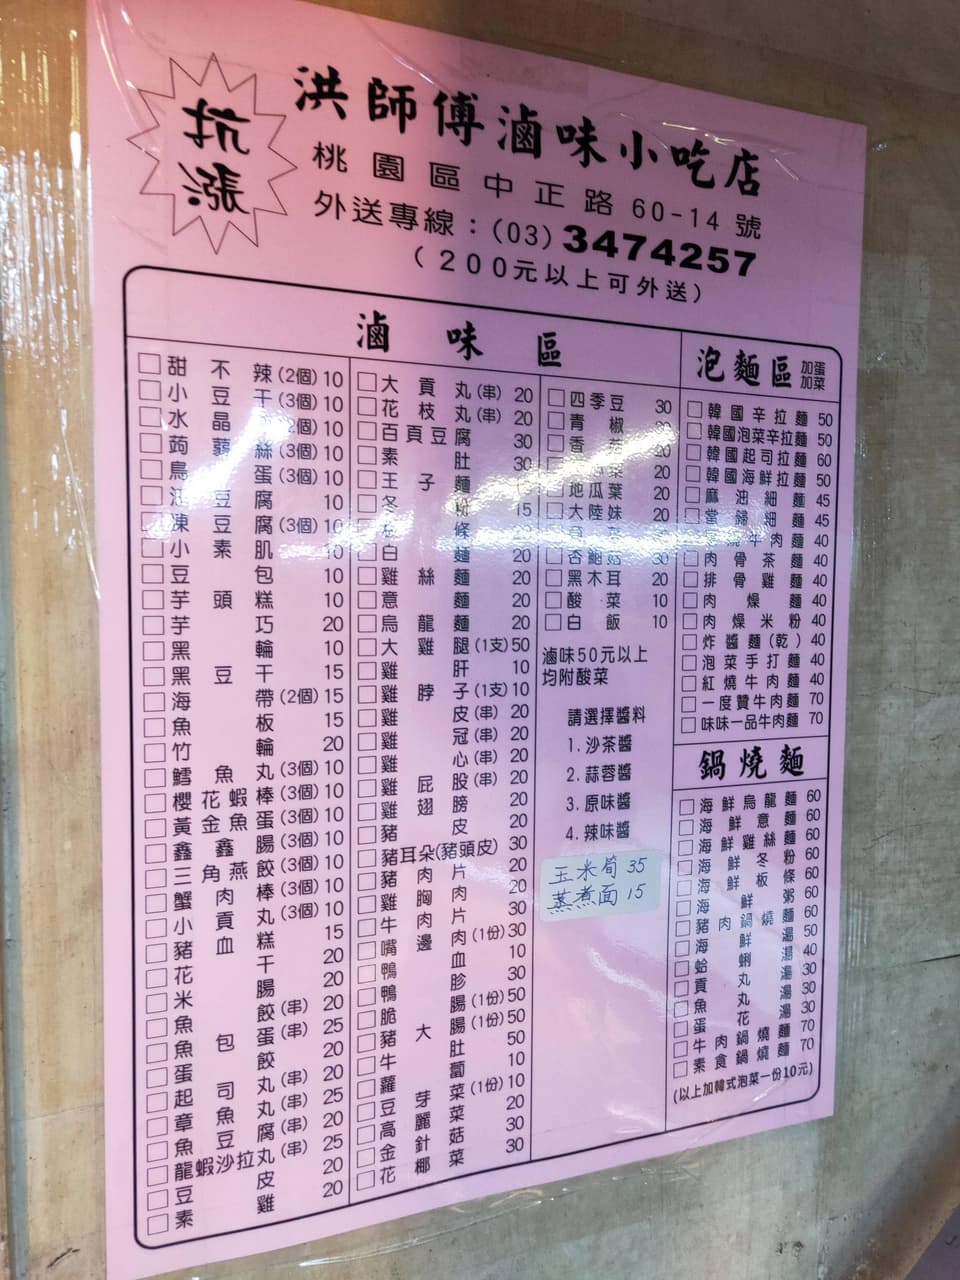 抗漲!
洪師傅滷味小吃店
桃園區中正路60-14號
外送專線：(03)3474257
(200元以上可外送)
滷味區
甜不辣(2個)10
小豆干(3個)10
水晶 (2個)10
蒟蒻絲(3個)10
鳥蛋(3個)10
油豆腐 10
凍豆腐(3個)10
小素肌 10
豆包 10
芋頭糕 10
芋巧 20
黑輪 10
黑豆干 15
海帶(2個)15
魚板 15
竹輪 20
鱈魚丸(3個)10
櫻花蝦棒(3個)10
黃金魚蛋(3個)10
鑫鑫腸(3個)10
三角燕餃(3個)10
蟹肉棒(3個)10
小貢丸(3個)10
豬血糕 15
花干 20
米腸 20
魚餃(串)20
魚包蛋(串)25
蛋餃 20
起司丸(串)20
章魚丸(串)25
魚豆腐(串)20
龍蝦沙拉丸(串)25
豆皮 20
素雞 20
大貢丸(串)20
花枝丸(串)20
百頁豆腐 30
素肚 30
王子麵
冬粉 15
板條
白麵 20
雞絲麵 20
意麵 20
烏龍麵 20
大雞腿(1支)50
雞肝 10
雞脖子(1支)10
雞皮(串)20
雞冠(串)20
雞心(串)20
雞屁股(串)20
雞翅膀 20
豬皮 20
豬耳朵(豬頭皮) 30
豬肉片 20
雞胸肉 20
牛肉片 30
嘴邊肉(1份)30
鴨血 10
鴨胗 30
脆腸(1份)50
豬大腸(1份)50
牛肚 50
蘿蔔 10
豆芽菜(1份)10
高麗菜 20
金針菇 30
花椰菜 30
四季豆 30
青椒
香菇 20
菜 20
地瓜葉 20
大陸妹 20
杏鮑菇 30
黑木耳 20
酸菜 10
白飯 10
滷味50元以上
均附酸菜
請選擇醬料
1.沙茶醬
2.蒜蓉醬
3.原味醬
4.辣味醬
玉米筍 35
蒸煮面 15
泡麵區 加蛋加菜
韓國辛拉麵 50
韓國泡菜辛拉麵 50
韓國起司拉麵 60
韓國海鮮拉麵 50
麻油細麵 45
當歸細麵 45
燒牛肉麵 40
肉骨茶麵 40
排骨雞麵 40
肉燥麵 40
肉燥米粉 40
炸醬麵(乾) 40
泡菜手打麵 40
紅燒牛肉麵 40
一度贊牛肉麵 70
味味一品牛肉麵 70
鍋燒麵
海鮮烏龍麵 60
海鮮意麵 60
海鮮雞絲麵 60
海鮮冬粉 60
海鮮板條 60
海鮮粥 60
豬肉鍋燒麵 60
海鮮湯 50
蛤蜊湯 40
貢丸湯 30
魚丸湯 30
蛋花湯 30
牛肉鍋燒麵 70
素食鍋燒麵 70
(以上加韓式泡菜一份10元)